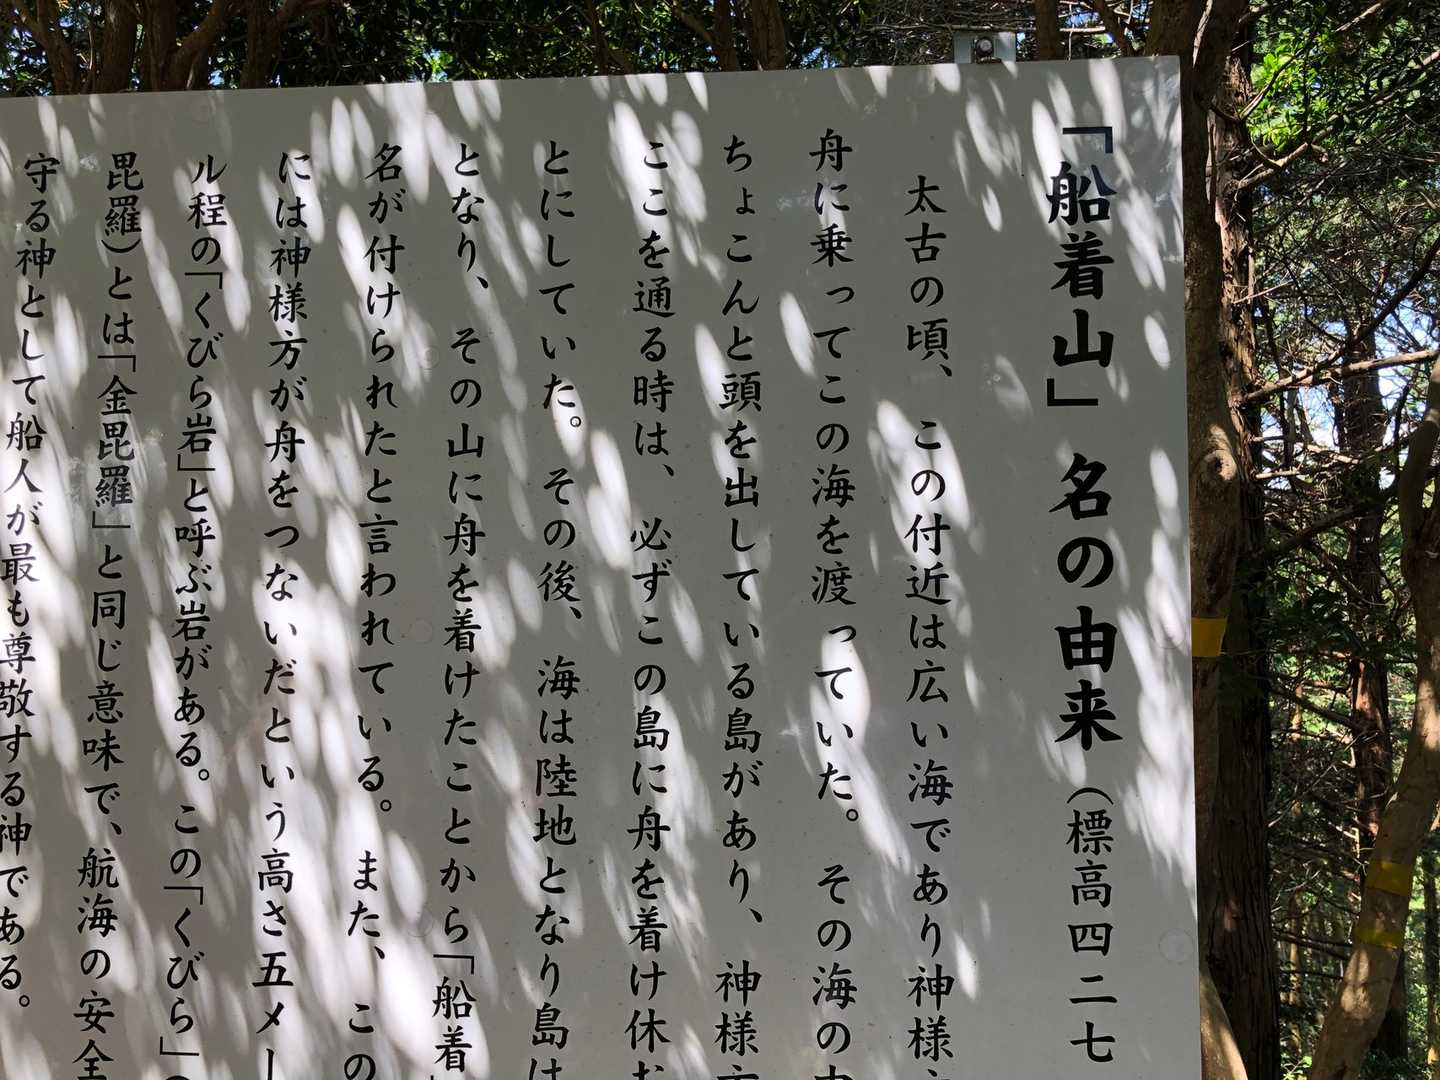 「船着山」名の由来（標高四二七
太古の頃、この付近は広い海であり神様
舟に乗ってこの海を渡っていた。その海の
ちょこんと頭を出している島があり、神様
ここを通る時は、必ずこの島に舟を着け休
とにしていた。その後、海は陸地となり島は
となり、その山に舟を着けたことから「船着
名が付けられたと言われている。また、この
には神様方が舟をつないだという高さ五メー
ル程の「くびら岩」と呼ぶ岩がある。この「くびら」（
毘羅）とは「金毘羅」と同じ意味で、航海の安全
守る神として船人が最も尊敬する神である。